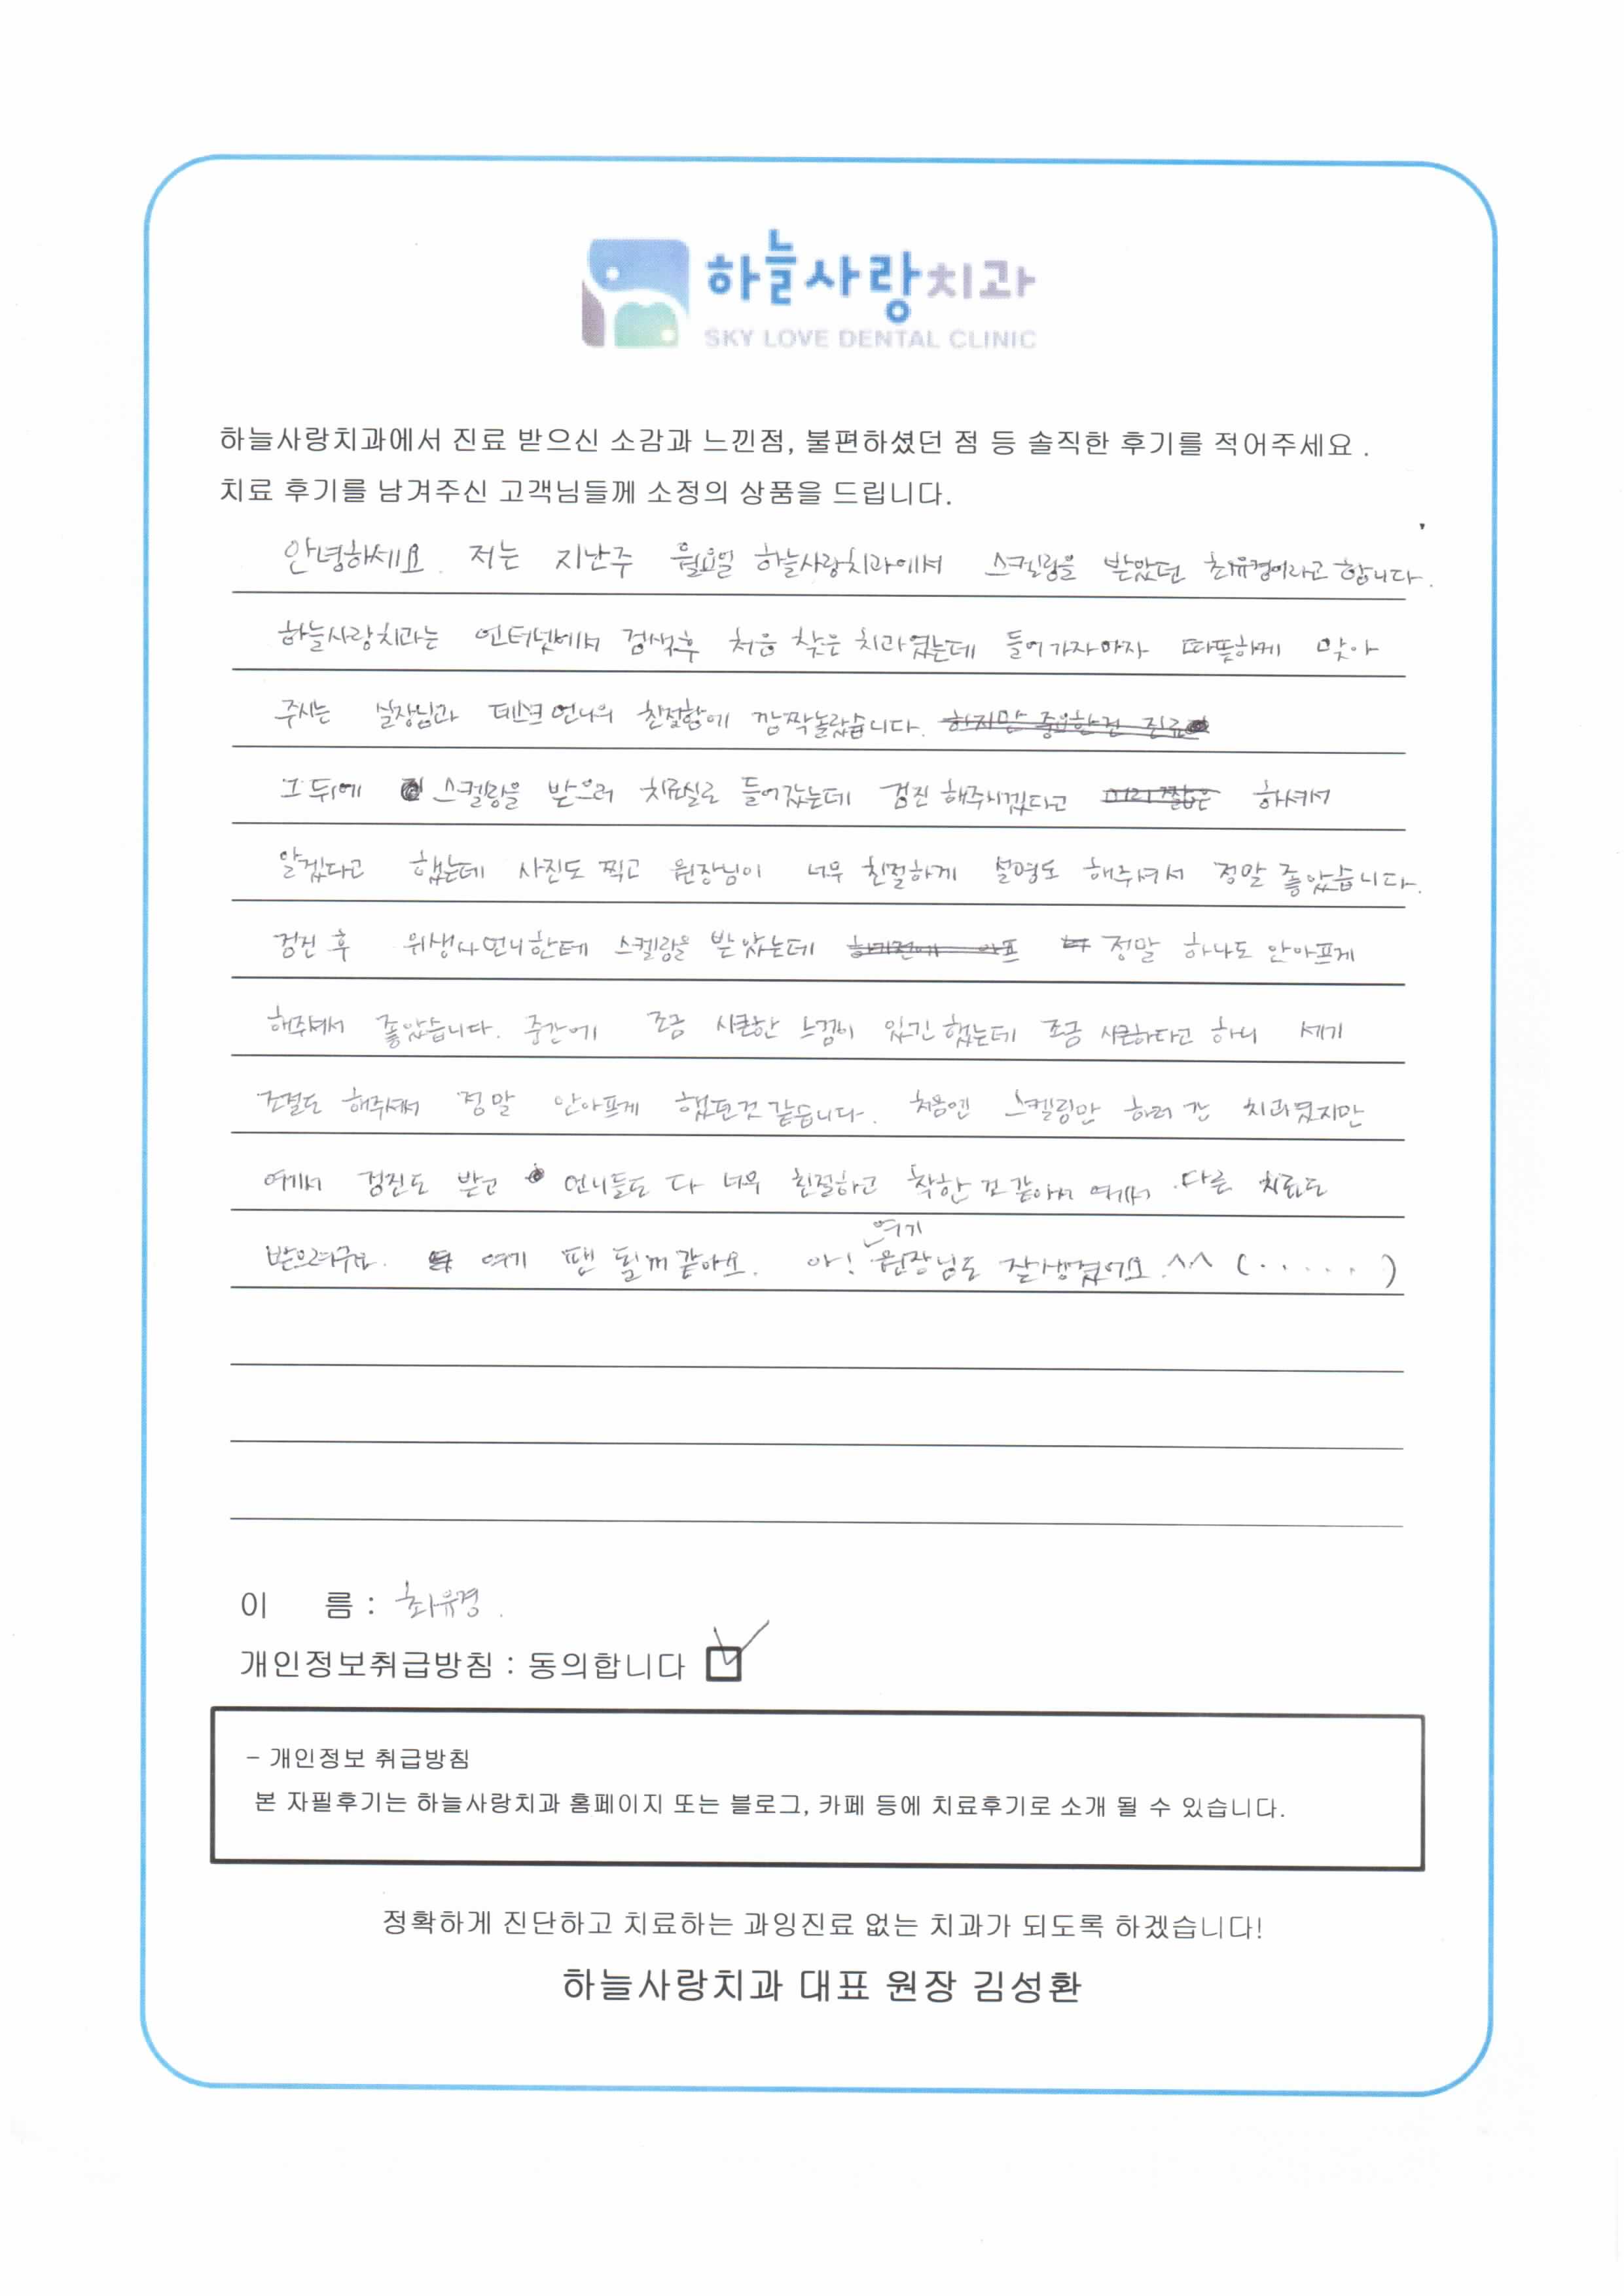 하늘사랑치과
SKY LOVE DENTAL CLINIC
하늘사랑치과에서 진료 받으신 소감과 느낀점, 불편하셨던 점 등 솔직한 후기를 적어주세요 .
치료 후기를 남겨주신 고객님들께 소정의 상품을 드립니다.
안녕하세요. 저는 지난주 월요일 하늘사랑치과에서 스켈링을 받았던 최유경이라고 합니다.
하늘사랑치과는 인터넷에서 검색후 처음 찾은 치과였는데 들어가자마자 따뜻하게 맞아
주시는 실장님과 데스크언니의 친절함에 깜짝놀랐습니다. 하지만 중요한건 진료
그 뒤에 스켈링을 받으러 치료실로 들어갔는데 검진 해주시겠다고 하셔서
알겠다고 했는데 사진도 찍고 원장님이 너무 친절하게 설명도 해주셔서 정말 좋았습니다.
검진 후 위생사언니한테 스켈링을 받았는데 정말 하나도 안아프게
해주셔서 좋았습니다. 중간에 조금 시큰한 느낌이 있긴 했는데 조금 시큰하다고 하니 세기
조절도 해주셔서 정말 안아프게 했던것 같습니다. 처음엔 스켈링만 하러 간 치과였지만
여기서 검진도 받고 언니들도 다 너무 친절하고 착한 것 같아서 여기서 다른 치료도
받으려구요. 여기 팬 될꺼 같아요. 아! 여기 원장님도 잘생겼어요.^^ (.....)
이 름 : 최유경.
개인정보취급방침 : 동의합니다
- 개인정보 취급방침
본 자필후기는 하늘사랑치과 홈페이지 또는 블로그, 카페 등에 치료후기로 소개 될 수 있습니다.
정확하게 진단하고 치료하는 과잉진료 없는 치과가 되도록 하겠습니다!
하늘사랑치과 대표 원장 김성환